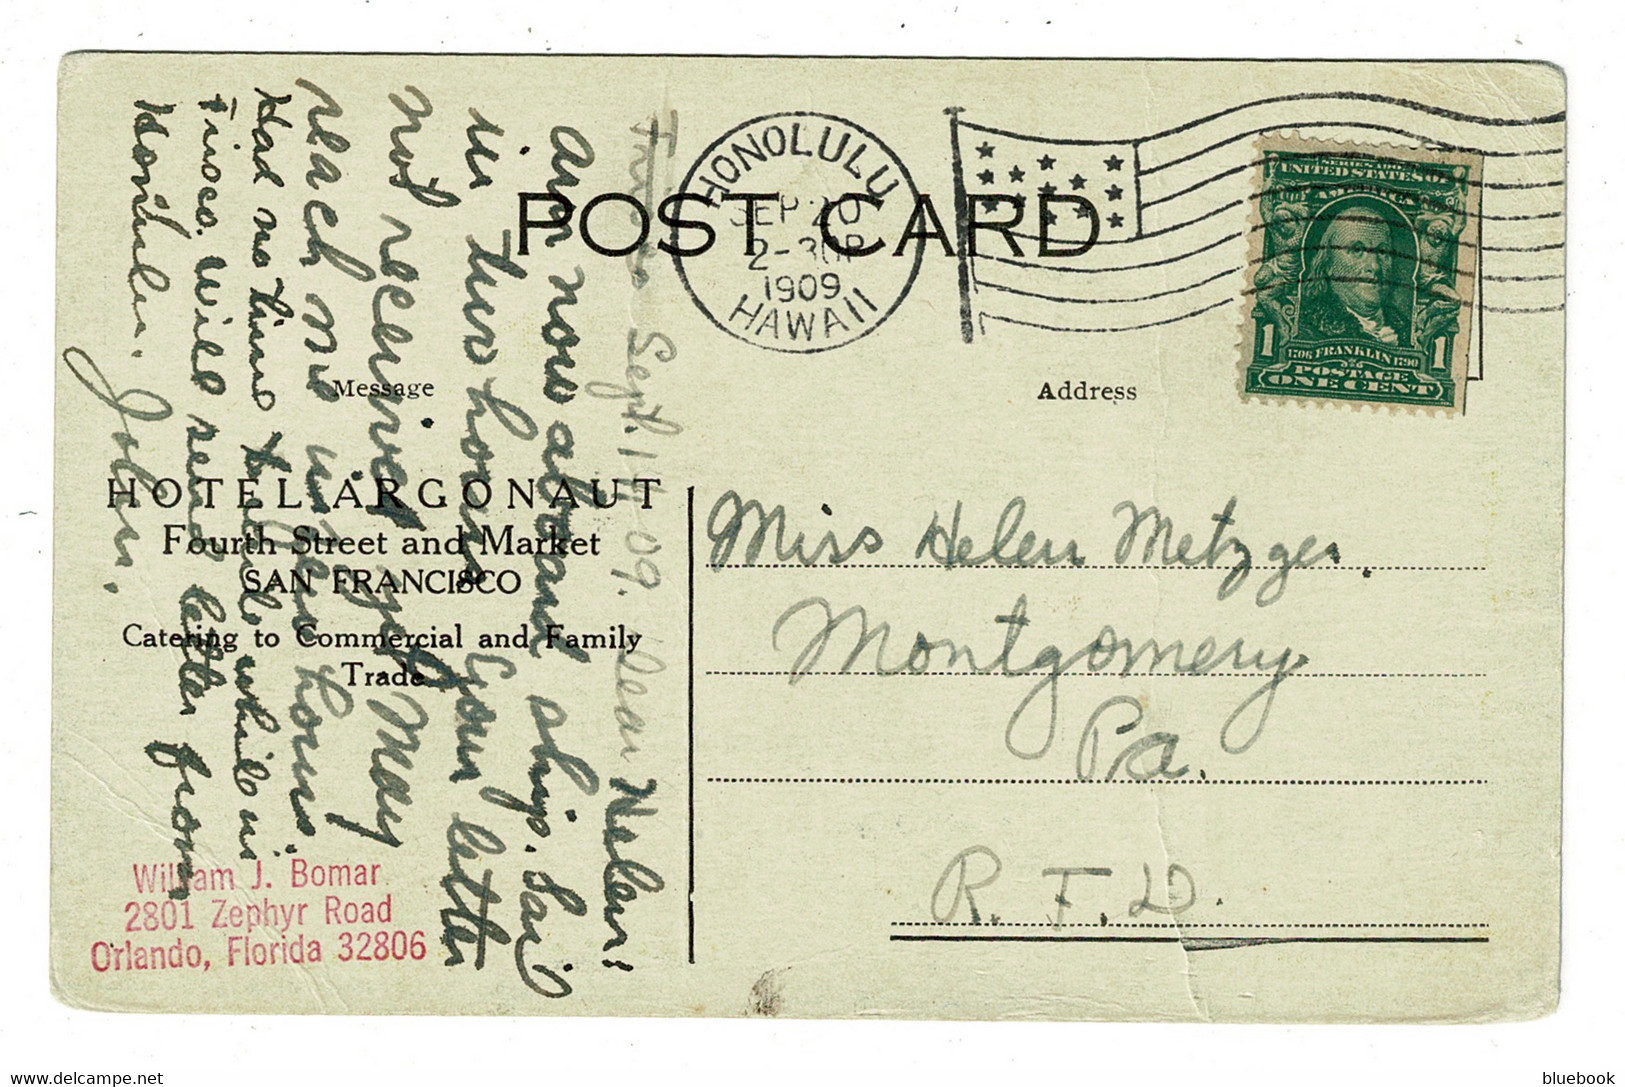 POST CARD
HONOLULU
SEP 20
2-30P
1909
HAWAII
UNITED STATES OF
AMERICA
1706 FRANKLIN 1790
1 1
POSTAGE
ONE CENT
Message
Address
HOTEL ARGONAUT
Fourth Street and Market
SAN FRANCISCO
Catering to Commercial and Family
Trade
Sept. 14-09. Dear Helen:
Am now aboard ship. Sail
in two hours. Your letter
not received yet. May
reach me in few hours.
Had no time to while in
Frisco. Will send letter from
Honolulu. John.
Miss Helen Metzger.
Montgomery
Pa.
R. F. D.
William J. Bomar
2801 Zephyr Road
Orlando, Florida 32806
bluebook